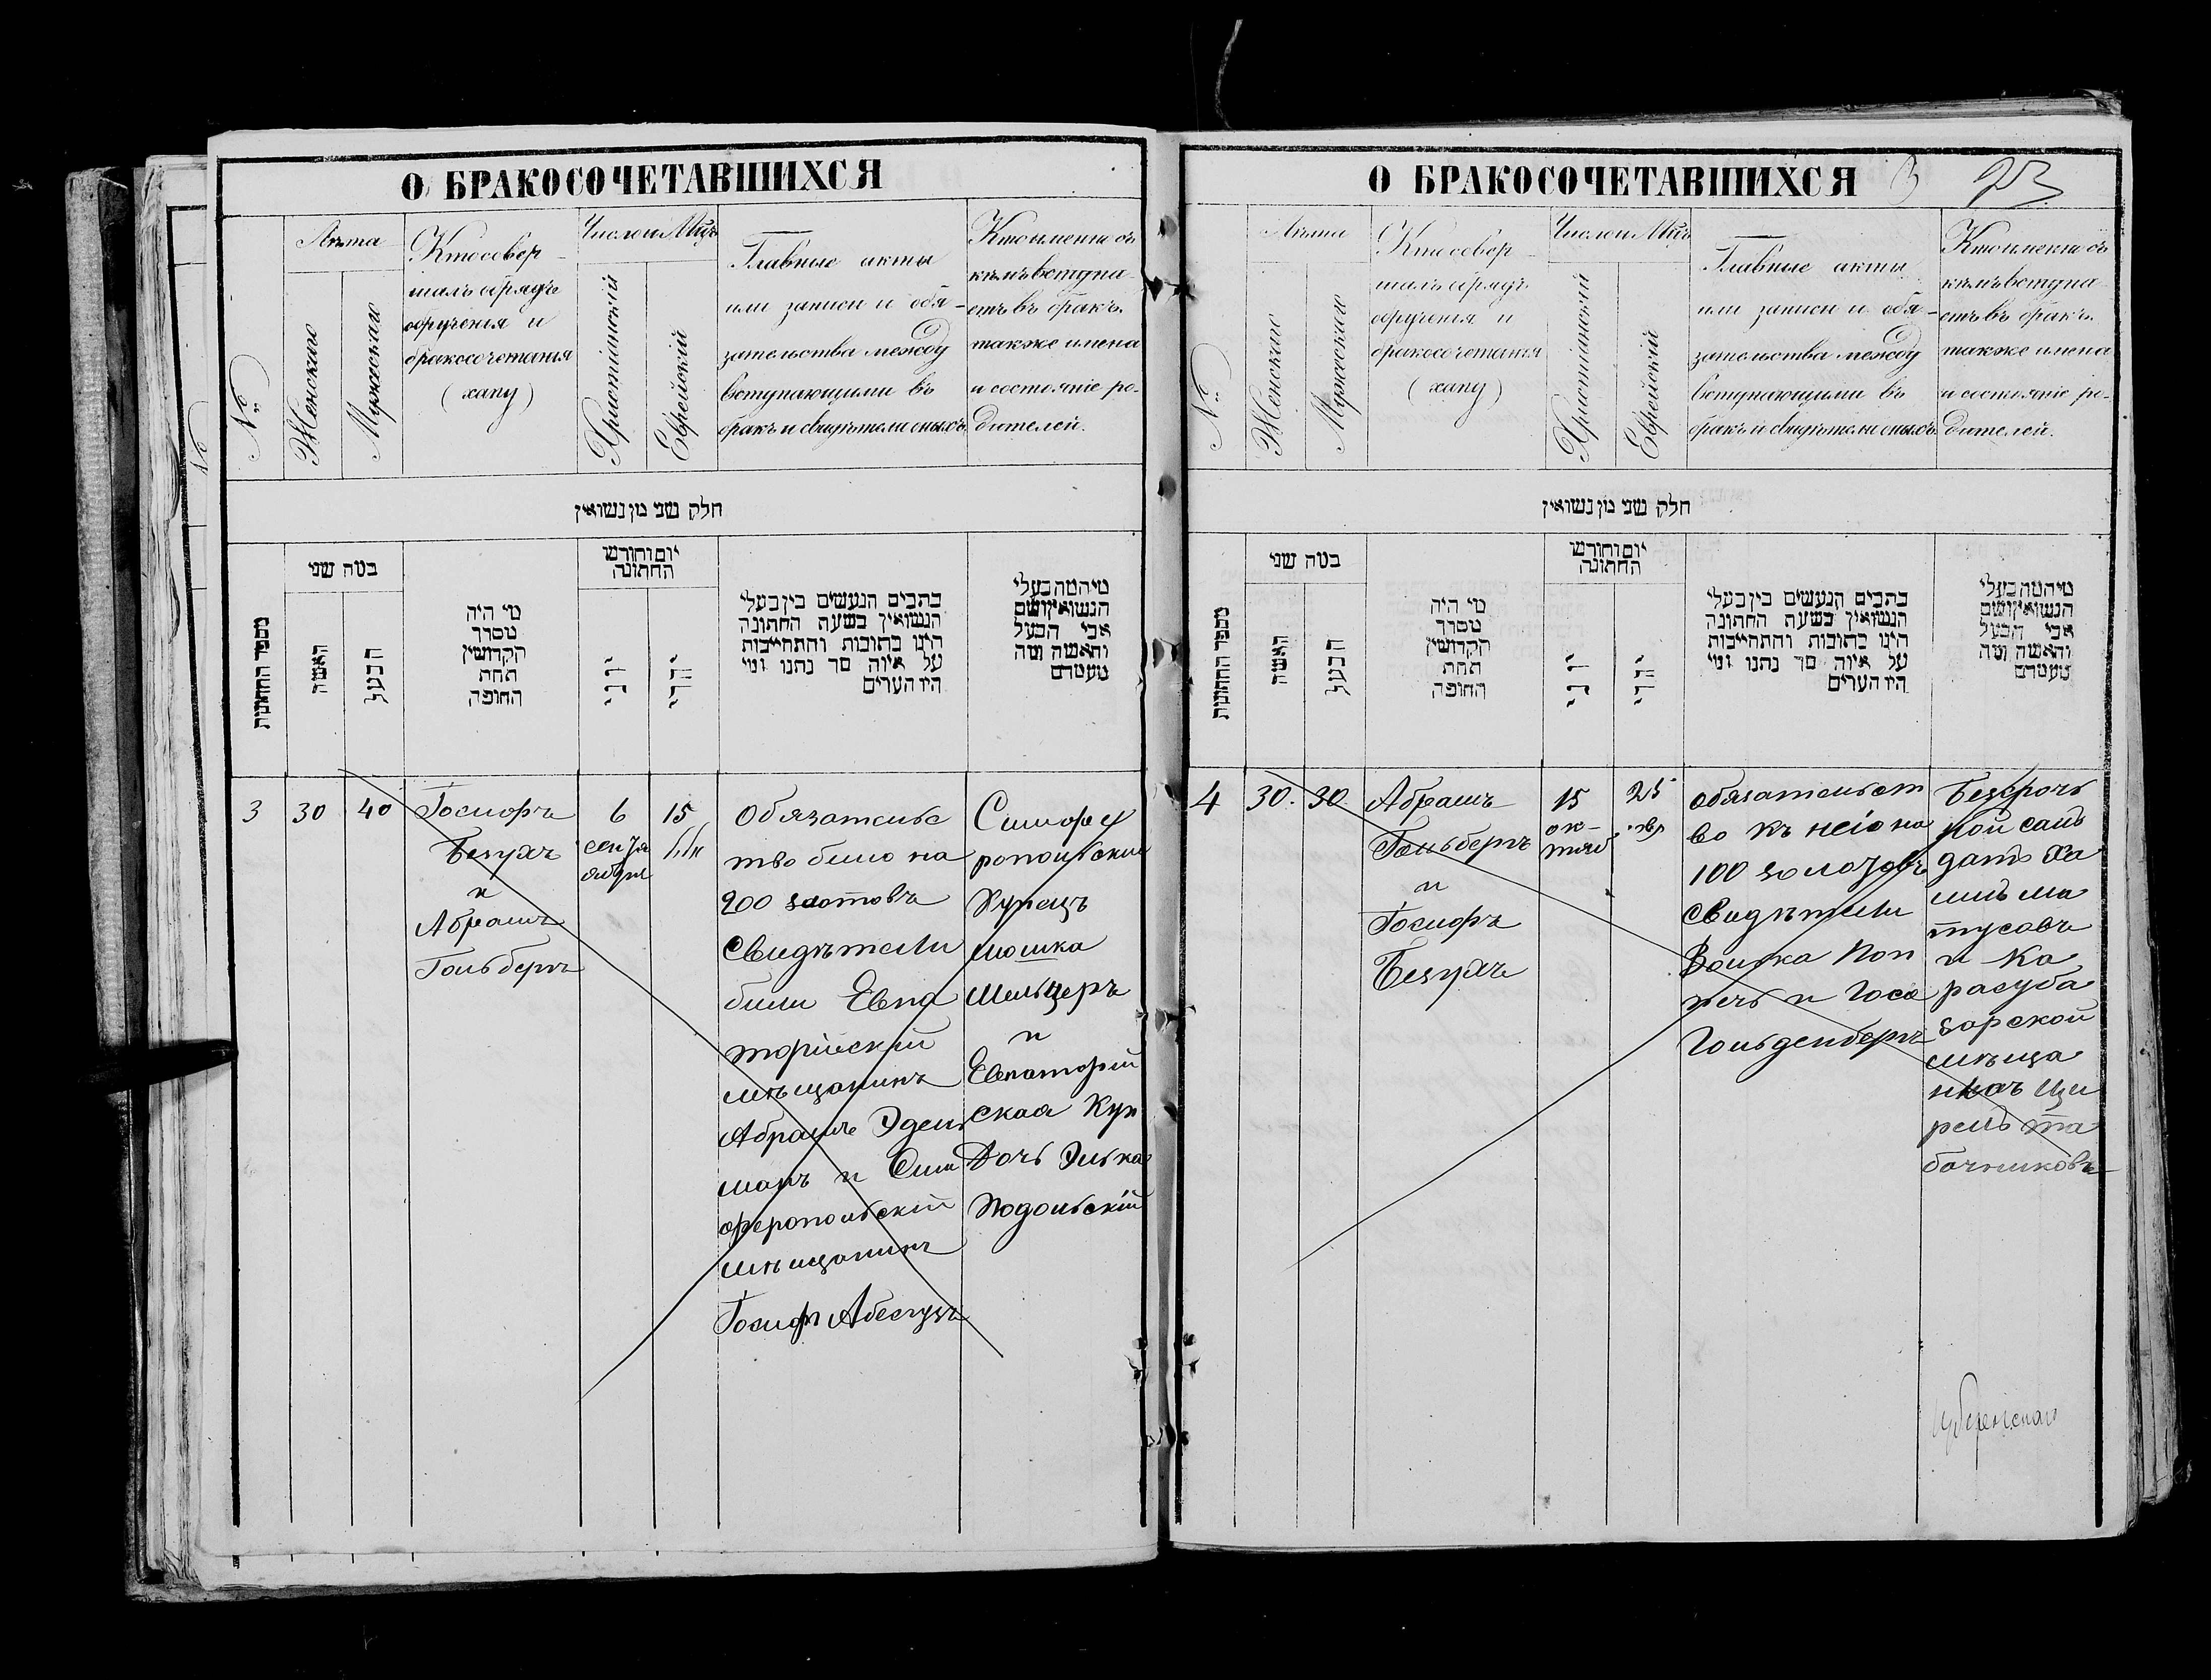 О БРАКОСОЧЕТАВШИХСЯ
№
Лѣта
Женскаго
Мужескаго
Кто совер-
шалъ обрядъ
обрученія и
бракосочетанія
(хапу)
Число и Мѣцъ
Христіанскій
Еврейскій
Главные акты
или записи и обя-
зательства между
вступающими въ
бракъ и свидѣтели оныхъ.
Кто именно съ
кѣмъ вступа-
етъ въ бракъ.
также имена
и состояніе ро-
дителей.
חלק שני מן נשואין
מספר החתונות
במה שני
האשה
הבעל
מי היה
מסדר
הקדושין
תחת
החופה
יום וחודש
החתונה
יוני
יהדי
כתבים הנעשים בין בעלי
הנשואין בשעת החתונה
היינו כתובות והתחייבות
על איזה סך נתנו ומי
היו העדים
מיהמה בעלי
הנשואין ושם
אבי הבעל
והאשה ומה
מעמדם
3
30
40
Іосифъ
Безухъ
и
Абрамъ
Гольберъ
6
сентя
15
Обязательс
тво было на
200 злотовъ
Свидѣтели
били Евпа
торійский
мѣщанинъ
Абрамъ Эдель
манъ и Сим
феропольскій
мѣщанинъ
Іосифъ
Симфер
ропольский
Купецъ
Мошка
Мельцеръ
и
Евпаторий
ская Куп
Дочь Элька
Подольскій
О БРАКОСОЧЕТАВШИХСЯ
23
№
Лѣта
Женскаго
Мужескаго
Кто совер-
шалъ обрядъ
обрученія и
бракосочетанія
(хапу)
Число и Мѣцъ
Христіанскій
Еврейскій
Главные акты
или записи и обя-
зательства между
вступающими въ
бракъ и свидѣтели оныхъ.
Кто именно съ
кѣмъ вступа-
етъ въ бракъ.
также имена
и состояніе ро-
дителей.
חלק שני מן נשואין
מספר החתונות
במה שני
האשה
הבעל
מי היה
מסדר
הקדושין
תחת
החופה
יום וחודש
החתונה
יוני
יהדי
כתבים הנעשים בין בעלי
הנשואין בשעת החתונה
היינו כתובות והתחייבות
על איזה סך נתנו ומי
היו העדים
מיהמה בעלי
הנשואין ושם
אבי הבעל
והאשה ומה
מעמדם
4
30.
30.
Абрамъ
Гольберъ
и
Іосифъ
Безухъ
15
ок-
тяб
25
обязательст
во къ нейо на
100 золотовъ
Свидѣтели
и Госа
Гольденберъ
Безсрочь
ной салъ
датъ Ха
имъ Ма
тусовъ
и Ка
расуба
зарской
мѣща
нкаъ Ци
рель Та
бачниковъ